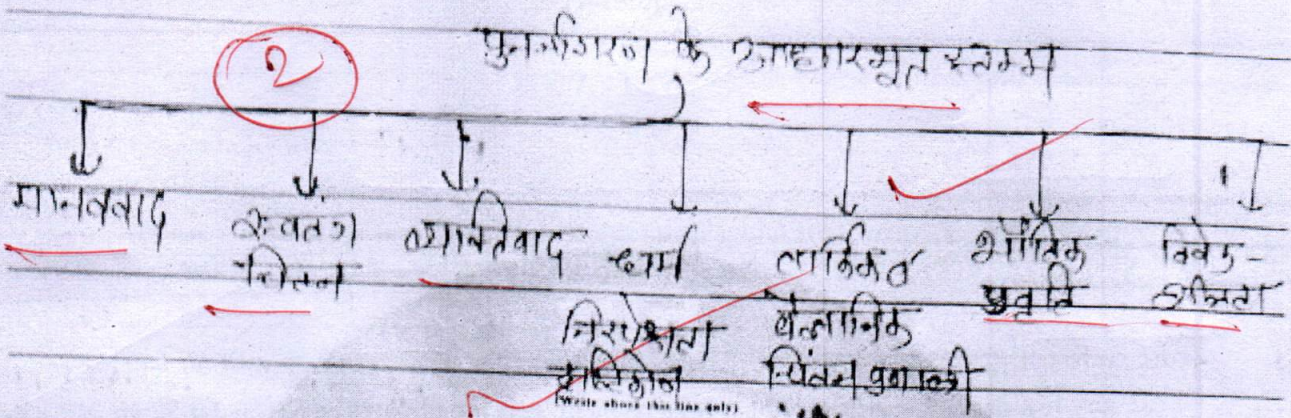 2
पुनर्जागरण के आधारभूत स्तम्भ
मानववाद
स्वतंत्र
चिंतन
व्यक्तिवाद
धर्म
निरपेक्षता
दृष्टिकोण
तार्किक व
वैज्ञानिक
चिंतन प्रणाली
भौतिक
प्रवृति
विवेक-
शीलता
(Write above this line only)